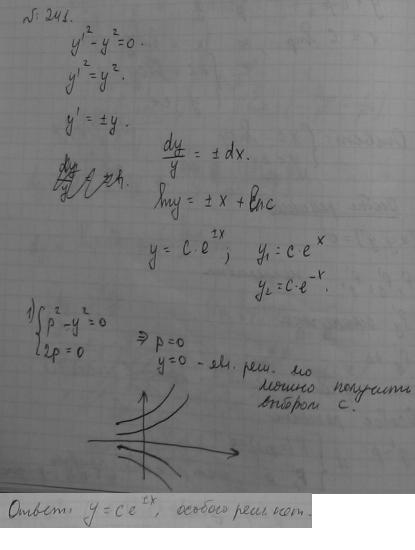 № 241.
y'² - y² = 0.
y'² = y².
y' = ± y.
dy/y = ± dx.
ln y = ± x + ln c
y = c · e^{±x}; y₁ = c · e^x
y₂ = c · e^{-x}.
1) { p² - y² = 0
2p = 0 ⇒ p = 0
y = 0 - явл. реш. но
можно получить
выбором c.
Ответ: y = c e^{±x}, особого реш. нет.